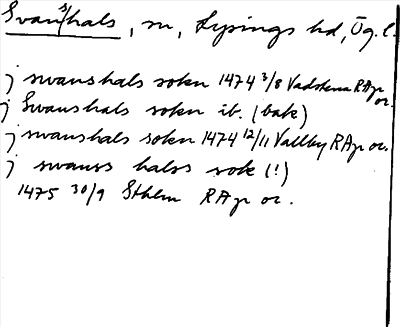 Svanshals, sn, Lysings hd, Ög. l.
j swanshals sokn 1474 3/8 Vadstena RAp or.
j Swanshals sokn ib. (bak)
j swanshals sokn 1474 12/11 Vallby RAp or.
j swanss halss sok (!)
1475 30/9 Sthlm RAp or.